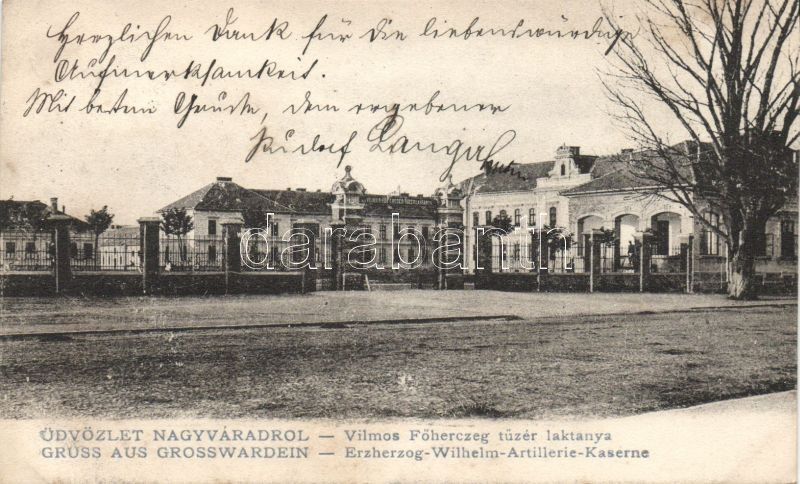 Herzlichen Dank für die liebenswürdige
Aufmerksamkeit.
Mit besten Grüßen, dem ergebener
Rudolf
darabanth
ÜDVÖZLET NAGYVÁRADROL — Vilmos Főherczeg tüzér laktanya
GRUSS AUS GROSSWARDEIN — Erzherzog-Wilhelm-Artillerie-Kaserne